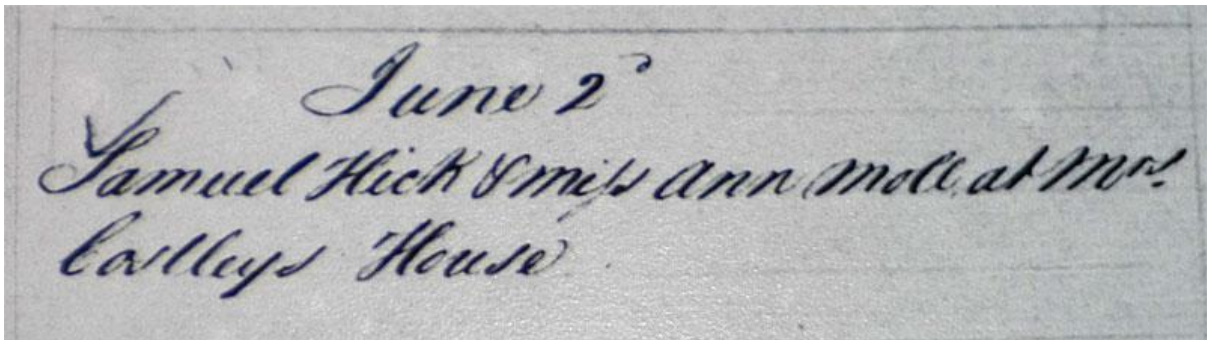 June 2d
Samuel Hick & miss Ann Moll at Mrs.
House